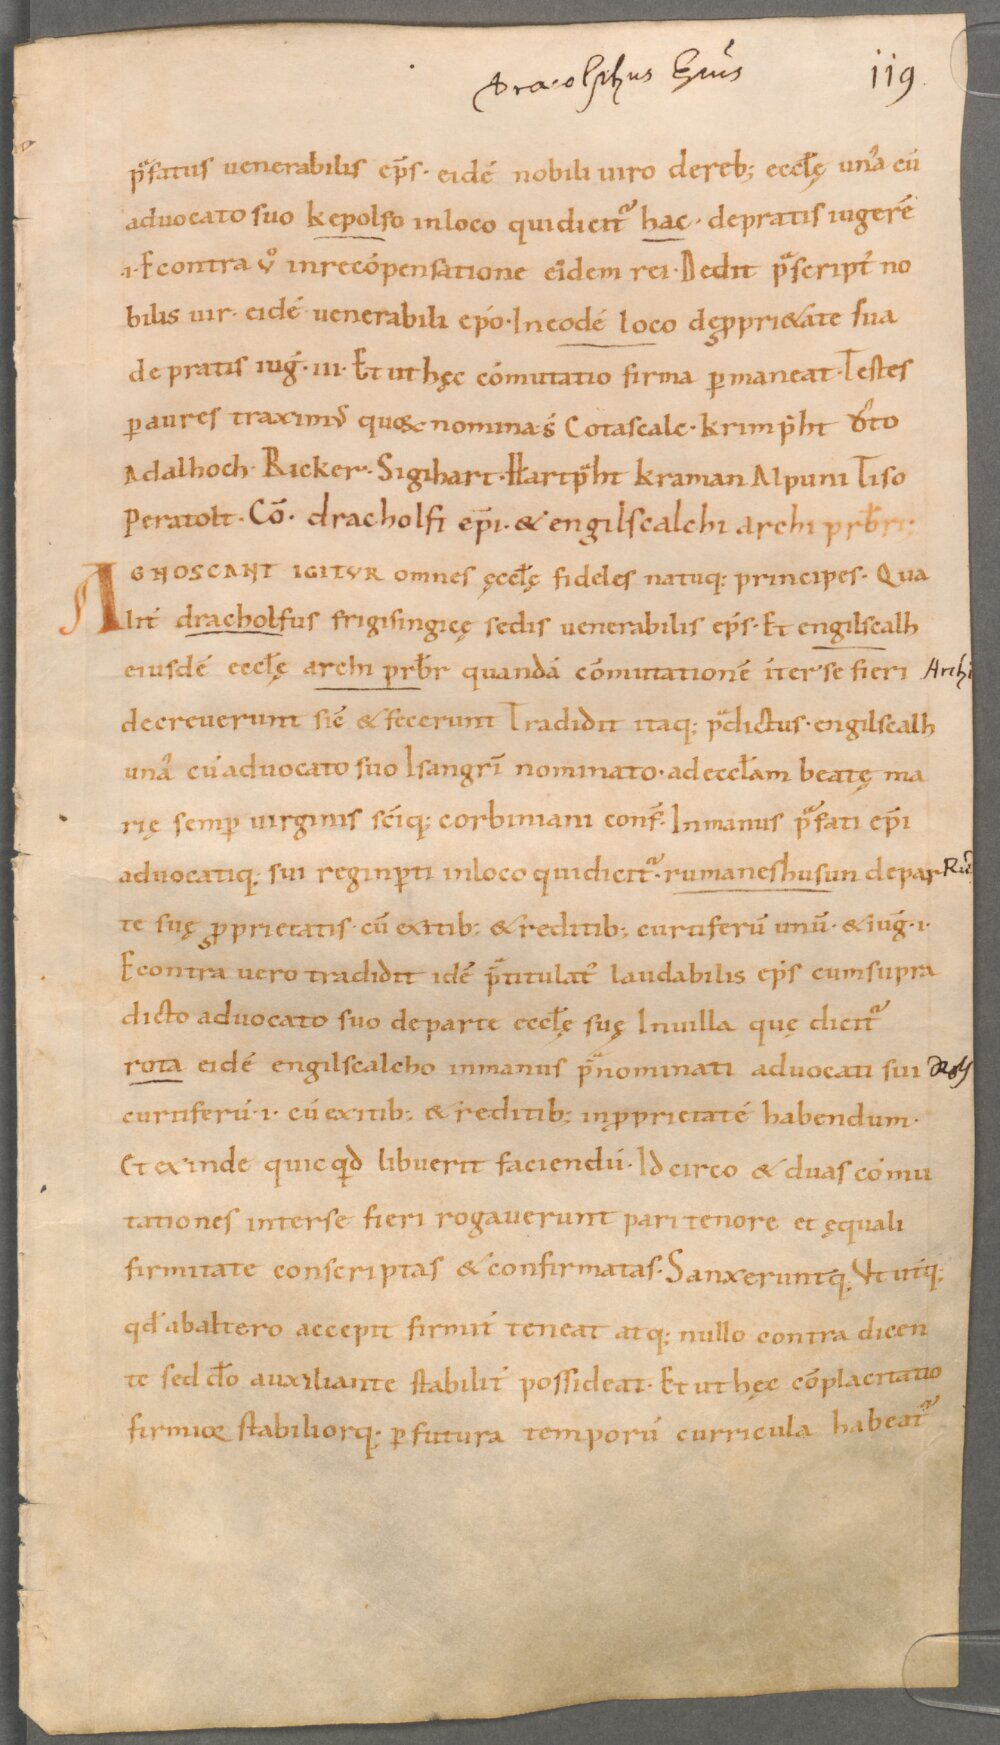 Dracolphus Epūs 119
p̄fatus uenerabilis ep̄s· eidē nobili uiro dereb; eccl̄ę una cū
aduocato suo kepolfo inloco quidicit᷑ hac· depratis iugerē
.1· Econtra v̊ inrecōpensatione eīdem rei· Dedit p̄script᷑ no
bilis uir· eidē uenerabili ep̄o· Ineodē loco deꝓpri&ate sua
de pratis iuḡ· III· Et ut hęc cōmutatio firma ꝑmaneat· Testes
ꝑ aures traxim᷒ quoꝝ nomina s̄ Cotascalc· krimp̄ht Oto
Adalhoch· Ricker· Sigihart· Hartp̄ht kraman Alpuni Tiso
Peratolt· Cō· dracholfi ep̄i· & engilscalchi archi prb̄ri;
AGNOSCANT IGITVR omnes ęccl̄ę fideles natuq; principes· Qua
lit᷑ dracholfus frigisingicę sedis uenerabilis ep̄s· Et engilscalh
eiusdē eccl̄ę archi prb̄r quandā cōmutationē int᷑ se fieri Archi
decreuerunt sic̄ & fecerunt Tradidit itaq; p̄dictus· engilscalh
una cū aduocato suo Isangrī nominato· ad eccl̄am beatę ma
rię semꝑ uirginis sc̄iq; corbiniani conf̄· Inmanus p̄fati ep̄i
aduocatiq; sui reginꝑti inloco quidicit᷑· rumaneshusun depar
te suę ꝓprietatis· cū exitib; & reditib; curtiferū unū· & iuḡ· I·
Econtra uero tradidit idē p̄titulat᷑ laudabilis ep̄s cumsupra
dicto aduocato suo departe eccl̄ę suę Inuilla quę dicit᷑
rota eidē engilscalcho inmanus p̄nominati aduocati sui Roth
curtiferū· I· cū exitib; & reditib; inꝓprietatē habendum·
Et exinde quicqd̄ libuerit faciendū· Id circo & duas cōmu
tationes interse fieri rogauerunt pari tenore et ęquali
firmitate conscriptas & confirmatas· Sanxeruntq; Vt utiq;
qd̄ abaltero accepit firmit᷑ teneat atq; nullo contra dicen
te sed dō auxiliante stabilit᷑ possideat· Et ut hęc cōplacitatio
firmioꝝ stabiliorq; ꝑ futura temporū curricula habeat᷑